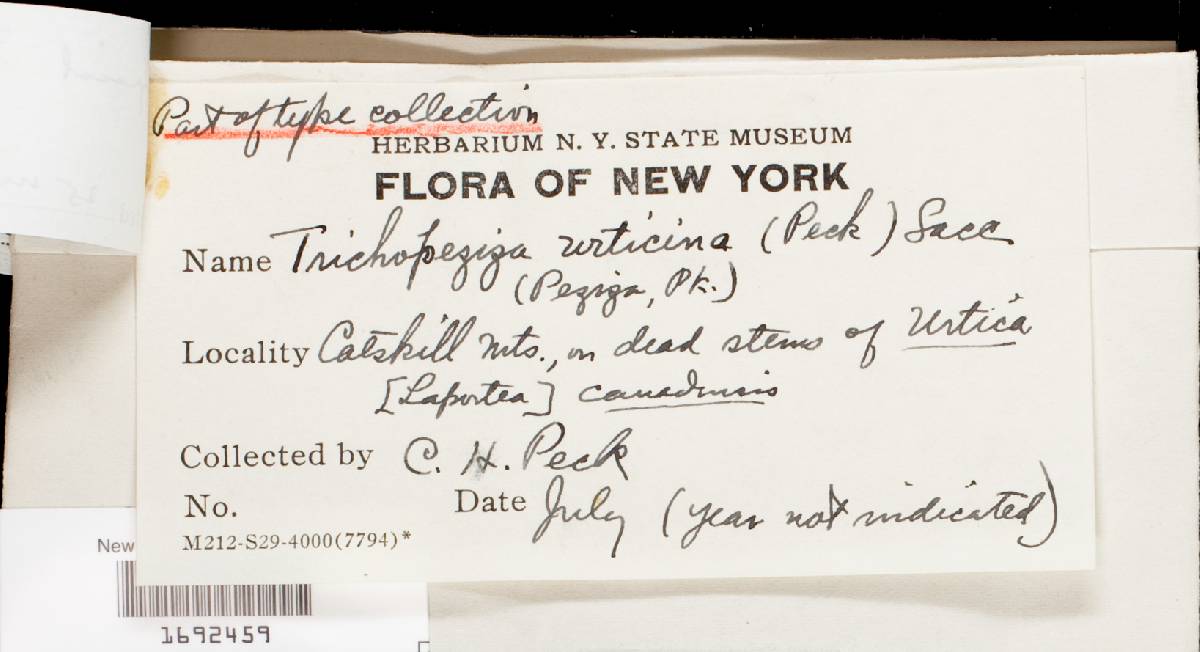 Part of type collection
HERBARIUM N. Y. STATE MUSEUM
FLORA OF NEW YORK
Name Trichopeziza urticina (Peck) Sacc
(Peziza, Pk.)
Locality Catskill Mts., on dead stems of Urtica
[Laportea] canadensis
Collected by C. H. Peck
No. Date July (year not indicated)
M212-S29-4000(7794)*
New
1692459